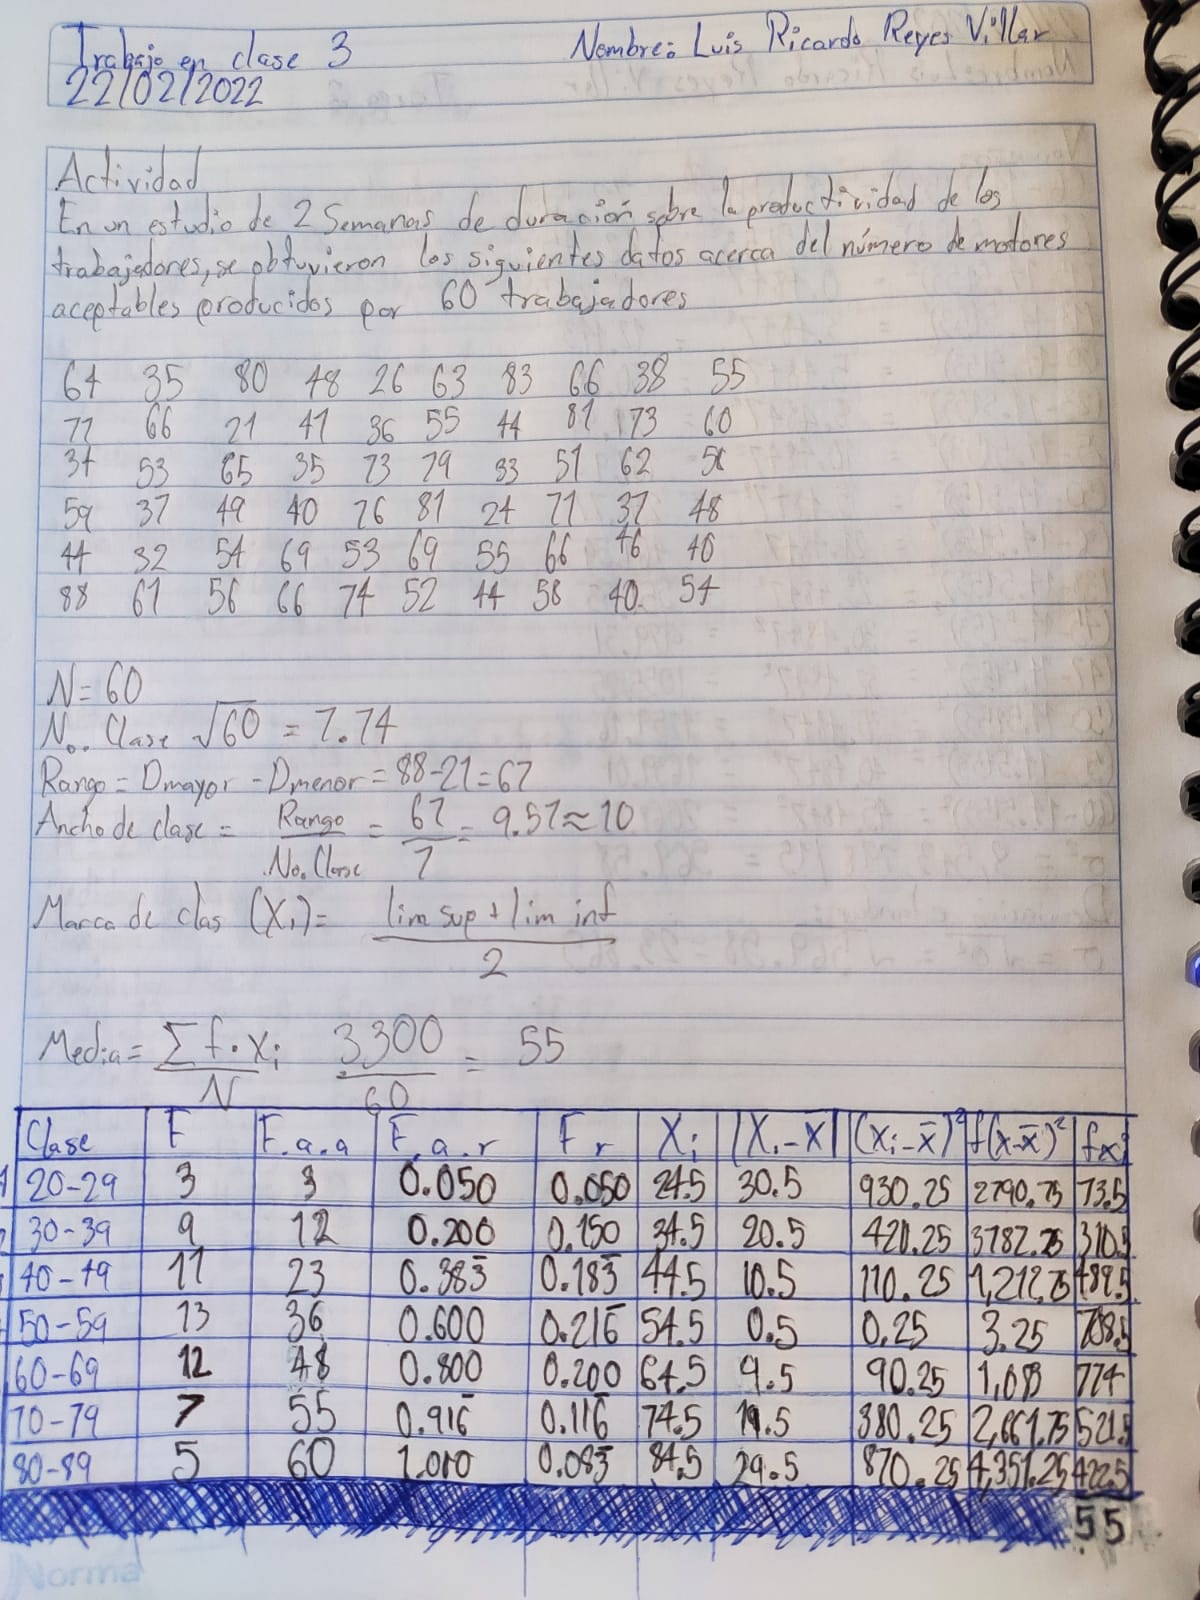 Trabajo en clase 3 Nombre: Luis Ricardo Reyes Villar
22/02/2022
Actividad
En un estudio de 2 Semanas de duración sobre la productividad de los
trabajadores, se obtuvieron los siguientes datos acerca del número de motores
aceptables producidos por 60 trabajadores
64 35 80 48 26 63 83 66 38 55
77 66 21 41 36 55 44 81 73 60
34 53 65 35 73 79 33 51 62
59 37 49 40 76 81 24 71 37 48
44 32 54 69 53 69 55 66 46 40
88 61 56 66 74 52 44 58 40 54
N=60
No. Clase √60 = 7.74
Rango = Dmayor - Dmenor = 88-21 = 67
Ancho de clase = Rango/No. Clase = 67/7 = 9.57 ≈ 10
Marca de clas (Xi) = lim sup + lim inf
2
Media = Σ f·Xi / N 3300/60 = 55
Clase F F.a.a F.a.r Fr Xi |Xi-X̄| (Xi-X̄)² f(x-X̄)² fxi
1 20-29 3 3 0.050 0.050 24.5 30.5 930.25 2790.75 73.5
2 30-39 9 12 0.200 0.150 34.5 20.5 420.25 3782.25 310.5
3 40-49 11 23 0.383̄ 0.183̄ 44.5 10.5 110.25 1,212.75 489.5
50-59 13 36 0.600 0.216̄ 54.5 0.5 0.25 3.25 708.5
60-69 12 48 0.800 0.200 64.5 9.5 90.25 774
70-79 7 55 0.916̄ 0.116̄ 74.5 19.5 380.25 2,661.75 521.5
80-89 5 60 1.000 0.083̄ 84.5 29.5 870.25 4,351.25 422.5
55
Norma